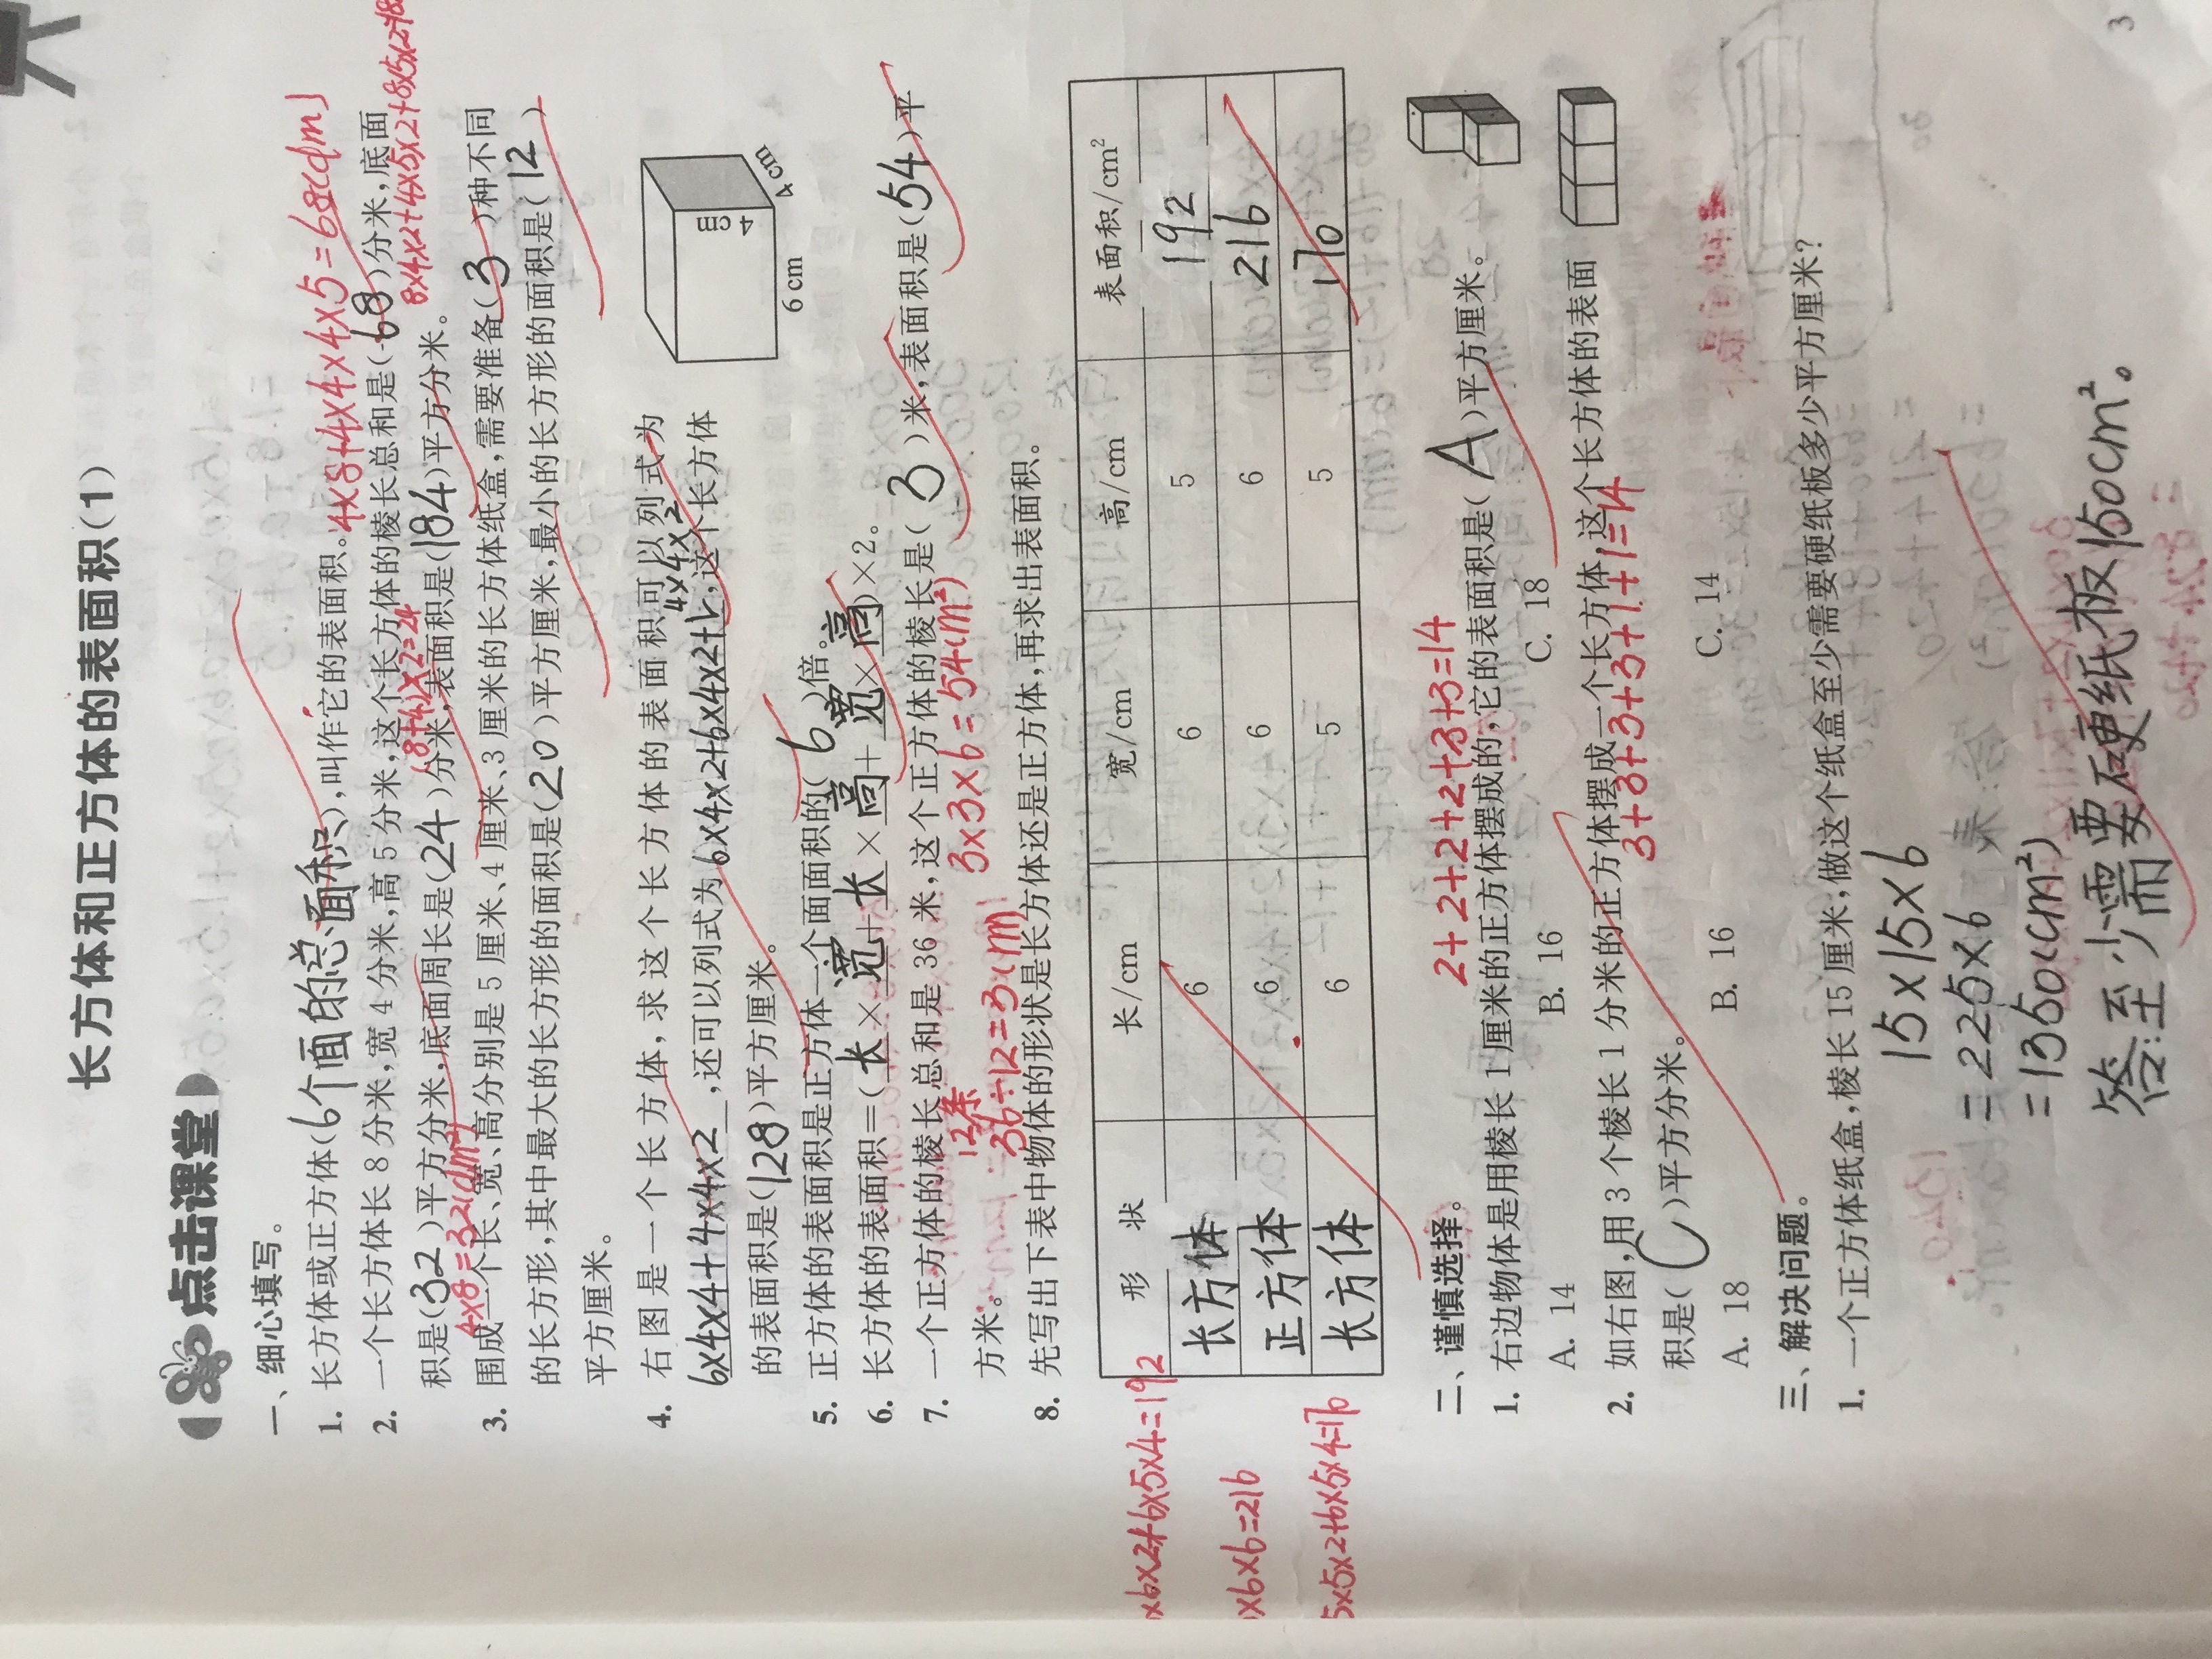 长方体和正方体的表面积(1)
点击课堂
一、细心填写。
1. 长方体或正方体(6个面的总面积),叫作它的表面积。4×8+4×4+4×5=68(dm)
2. 一个长方体长8分米,宽4分米,高5分米,这个长方体的棱长总和是(68)分米,底面
(8+4)×2=24
8×4×2+4×5×2+8×5×2=18
积是(32)平方分米,底面周长是(24)分米,表面积是(184)平方分米。
4×8=32(dm²)
3. 围成一个长、宽、高分别是5厘米、4厘米、3厘米的长方体纸盒,需要准备(3)种不同
的长方形,其中最大的长方形的面积是(20)平方厘米,最小的长方形的面积是(12)
平方厘米。
4. 右图是一个长方体,求这个长方体的表面积可以列式为
4×4×2
6×4×4+4×4×2,还可以列式为6×4×2+6×4×2+,这个长方体
的表面积是(128)平方厘米。
4 cm
4 cm
6 cm
5. 正方体的表面积是正方体一个面面积的(6)倍。
6. 长方体的表面积=(长×宽+长×高+宽×高)×2。
7. 一个正方体的棱长总和是36米,这个正方体的棱长是(3)米,表面积是(54)平
12条
方米。 36÷12=3(m) 3×3×6=54(m²)
8. 先写出下表中物体的形状是长方体还是正方体,再求出表面积。
形 状 长/cm 宽/cm 高/cm 表面积/cm²
长方体 6 6 5 192
正方体 6 6 6 216
长方体 6 5 5 170
×6×2+6×5×4=192
×6×6=216
5×5×2+6×5×4=170
二、谨慎选择。
2+2+2+2+3+3=14
1. 右边物体是用棱长1厘米的正方体摆成的,它的表面积是(A)平方厘米。
A. 14 B. 16 C. 18
2. 如右图,用3个棱长1分米的正方体摆成一个长方体,这个长方体的表面
3+3+3+3+1+1=14
积是(C)平方分米。
A. 18 B. 16 C. 14
三、解决问题。
1. 一个正方体纸盒,棱长15厘米,做这个纸盒至少需要硬纸板多少平方厘米?
15×15×6
=225×6
=1350(cm²)
答:至少需要硬纸板1350cm²。
3